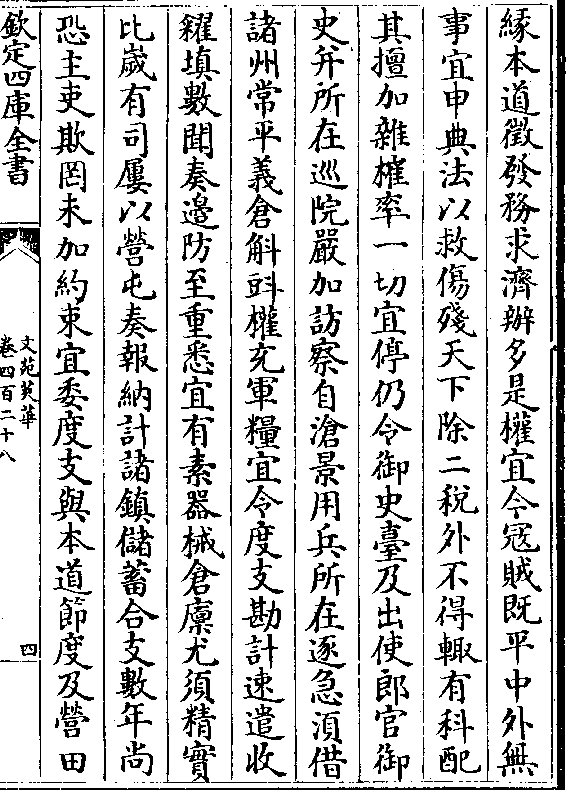 緣本道徵發務求濟辦多是權宜今寇賊既平中外無
事宜申典法以救傷殘天下除二稅外不得輙有科配
其擅加雜榷率一切宜停仍令御史臺及出使郎官御
史并所在巡院嚴加訪察自滄景用兵所在逐急湏借
諸州常平義倉斛㪷權充軍糧宜令度支勘計速遣收
糴填數聞奏邊防至重悉宜有素器械倉廪尤須精實
比嵗有司屢以營屯奏報納計諸鎮儲蓄合支數年尚
恐主吏欺罔未加約束宜委度支與本道節度及營田
欽定四庫全書
文苑英華
卷四百二十八
四